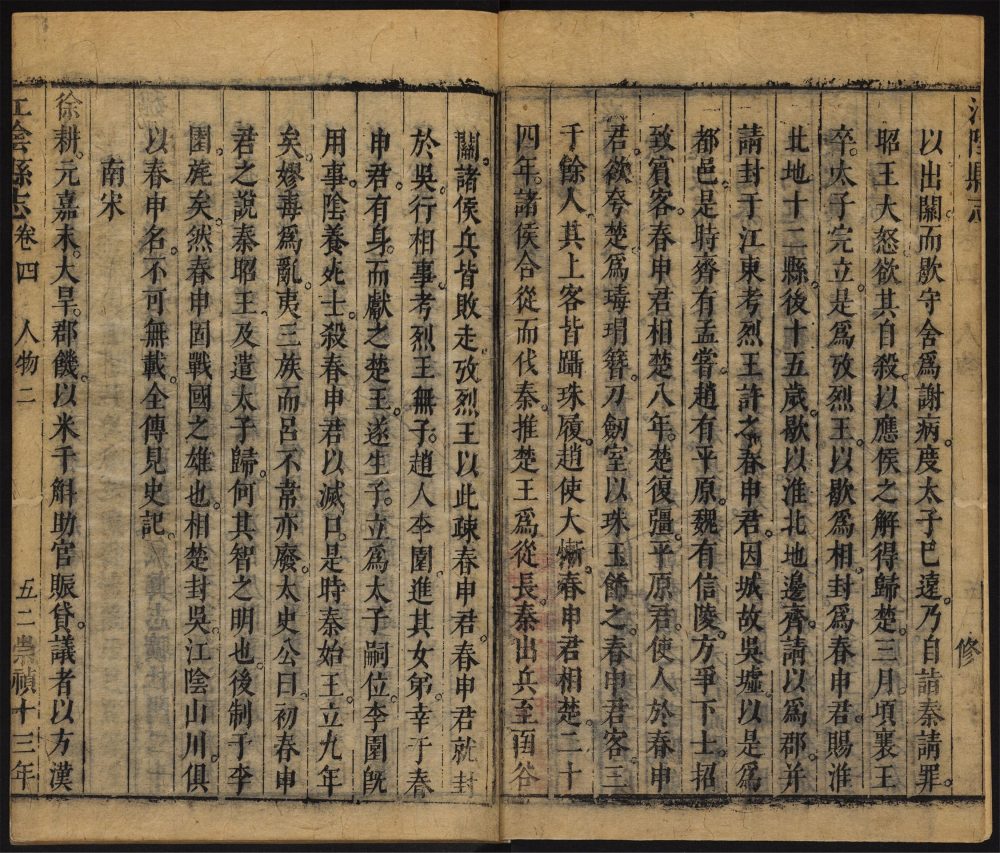 江陰縣志
修
以出關而歇守舍爲謝病度太子巳遠乃自詣秦請罪
昭王大怒欲其自殺以應侯之解得歸楚三月頃襄王
卒太子完立是爲攷烈王以歇爲相封爲春申君賜淮
北地十二縣後十五歲歇以淮北地邊齊請以爲郡并
請封于江東考烈王許之春申君因城故吳墟以是爲
都邑是時齊有孟嘗趙有平原魏有信陵方爭下士招
致賓客春申君相楚八年楚復彊平原君使人於春申
君欲夸楚爲瑇瑁簪刀劒室以珠玉飾之春申君客三
千餘人其上客皆躡珠履趙使大慚春申君相楚二十
四年諸侯合從而伐秦推楚王爲從長秦出兵至函谷
關諸侯兵皆敗走攷烈王以此疎春申君春申君就封
於吳行相事考烈王無子趙人李園進其女弟幸于春
申君有身而獻之楚王遂生子立爲太子嗣位李園旣
用事陰養死士殺春申君以滅口是時秦始王立九年
矣嫪毐爲亂夷三族而呂不韋亦廢太史公曰初春申
君之說秦昭王及遣太子歸何其智之明也後制于李
園旄矣然春申固戰國之雄也相楚封吳江陰山川俱
以春申名不可無載全傳見史記
南宋
徐耕元嘉末大旱郡饑以米千斛助官賑貸議者以方漢
江陰縣志卷四 人物二 五二崇禎十三年